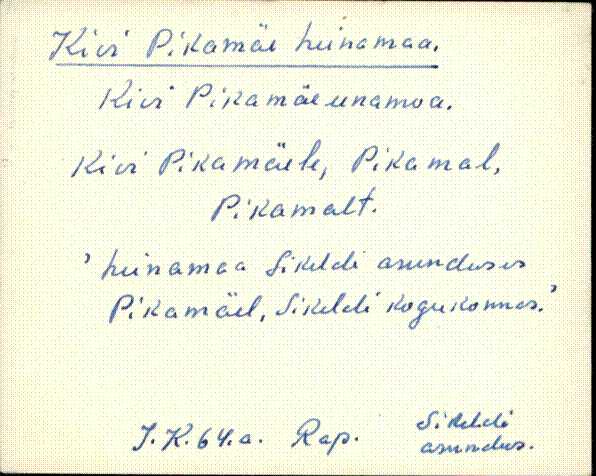 Kivi Pikamäe heinamaa.
Kivi Pikamäeunamoa.
Kivi Pikamäele, Pikamal,
Pikamalt.
' heinamaa Sikeldi asunduses
Pikamäel, Sikeldi kogukonnas.'
J.K.64.a. Rap. Sikeldi
asundus.